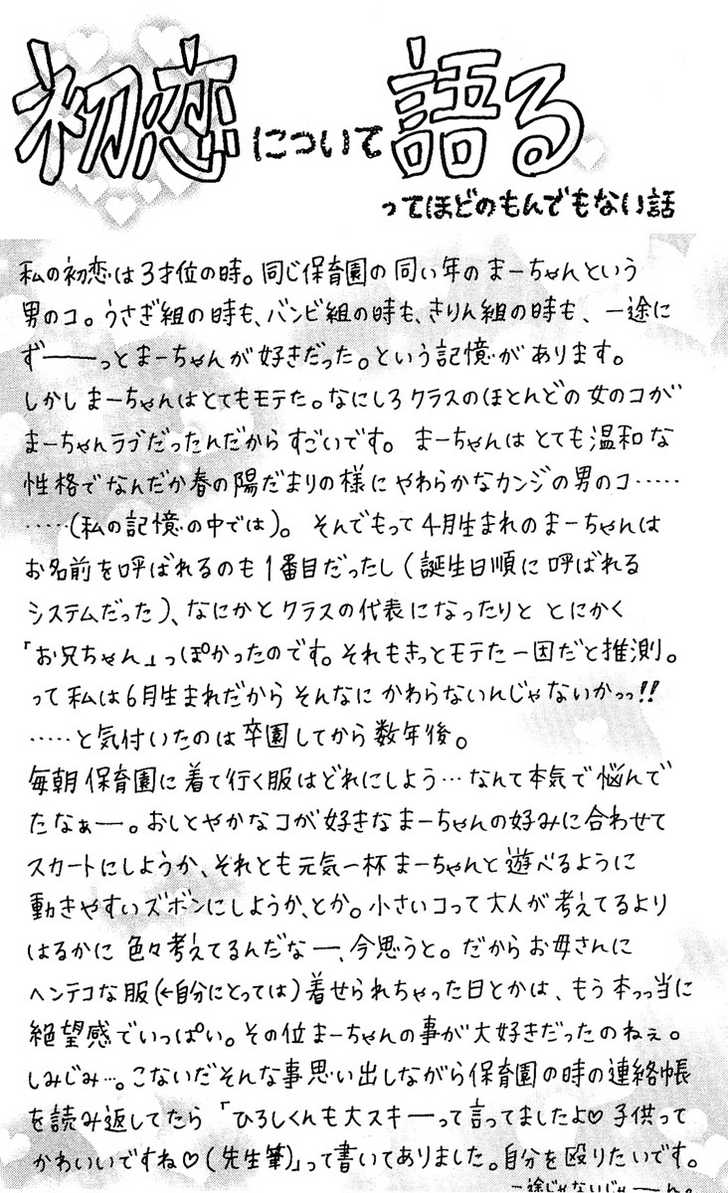 初恋について語る
ってほどのもんでもない話
私の初恋は3才位の時。同じ保育園の同い年のまーちゃんという
男のコ。うさぎ組の時も、バンビ組の時も、きりん組の時も、一途に
ず───っとまーちゃんが好きだった。という記憶があります。
しかしまーちゃんはとてもモテた。なにしろクラスのほとんどの女のコが
まーちゃんラブだったんだからすごいです。まーちゃんはとても温和な
性格でなんだか春の陽だまりの様にやわらかなカンジの男のコ……
……(私の記憶の中では)。そんでもって4月生まれのまーちゃんは
お名前を呼ばれるのも1番目だったし(誕生日順に呼ばれる
システムだった)、なにかとクラスの代表になったりととにかく
「お兄ちゃん」っぽかったのです。それもきっとモテた一因だと推測。
って私は6月生まれだからそんなにかわらないんじゃないかっっ!!
……と気付いたのは卒園してから数年後。
毎朝保育園に着て行く服はどれにしよう…なんて本気で悩んで
たなぁー。おしとやかなコが好きなまーちゃんの好みに合わせて
スカートにしようか、それとも元気一杯まーちゃんと遊べるように
動きやすいズボンにしようか、とか。小さいコって大人が考えてるより
はるかに色々考えてるんだなー、今思うと。だからお母さんに
ヘンテコな服(←自分にとっては)着せられちゃった日とかは、もう本っっ当に
絶望感でいっぱい。その位まーちゃんの事が大好きだったのねぇ。
しみじみ…。こないだそんな事思い出しながら保育園の時の連絡帳
を読み返してたら「ひろしくんも大スキーって言ってましたよ♡子供って
かわいいですね♡(先生筆)」って書いてありました。自分を殴りたいです。
一途じゃないじゃーん。